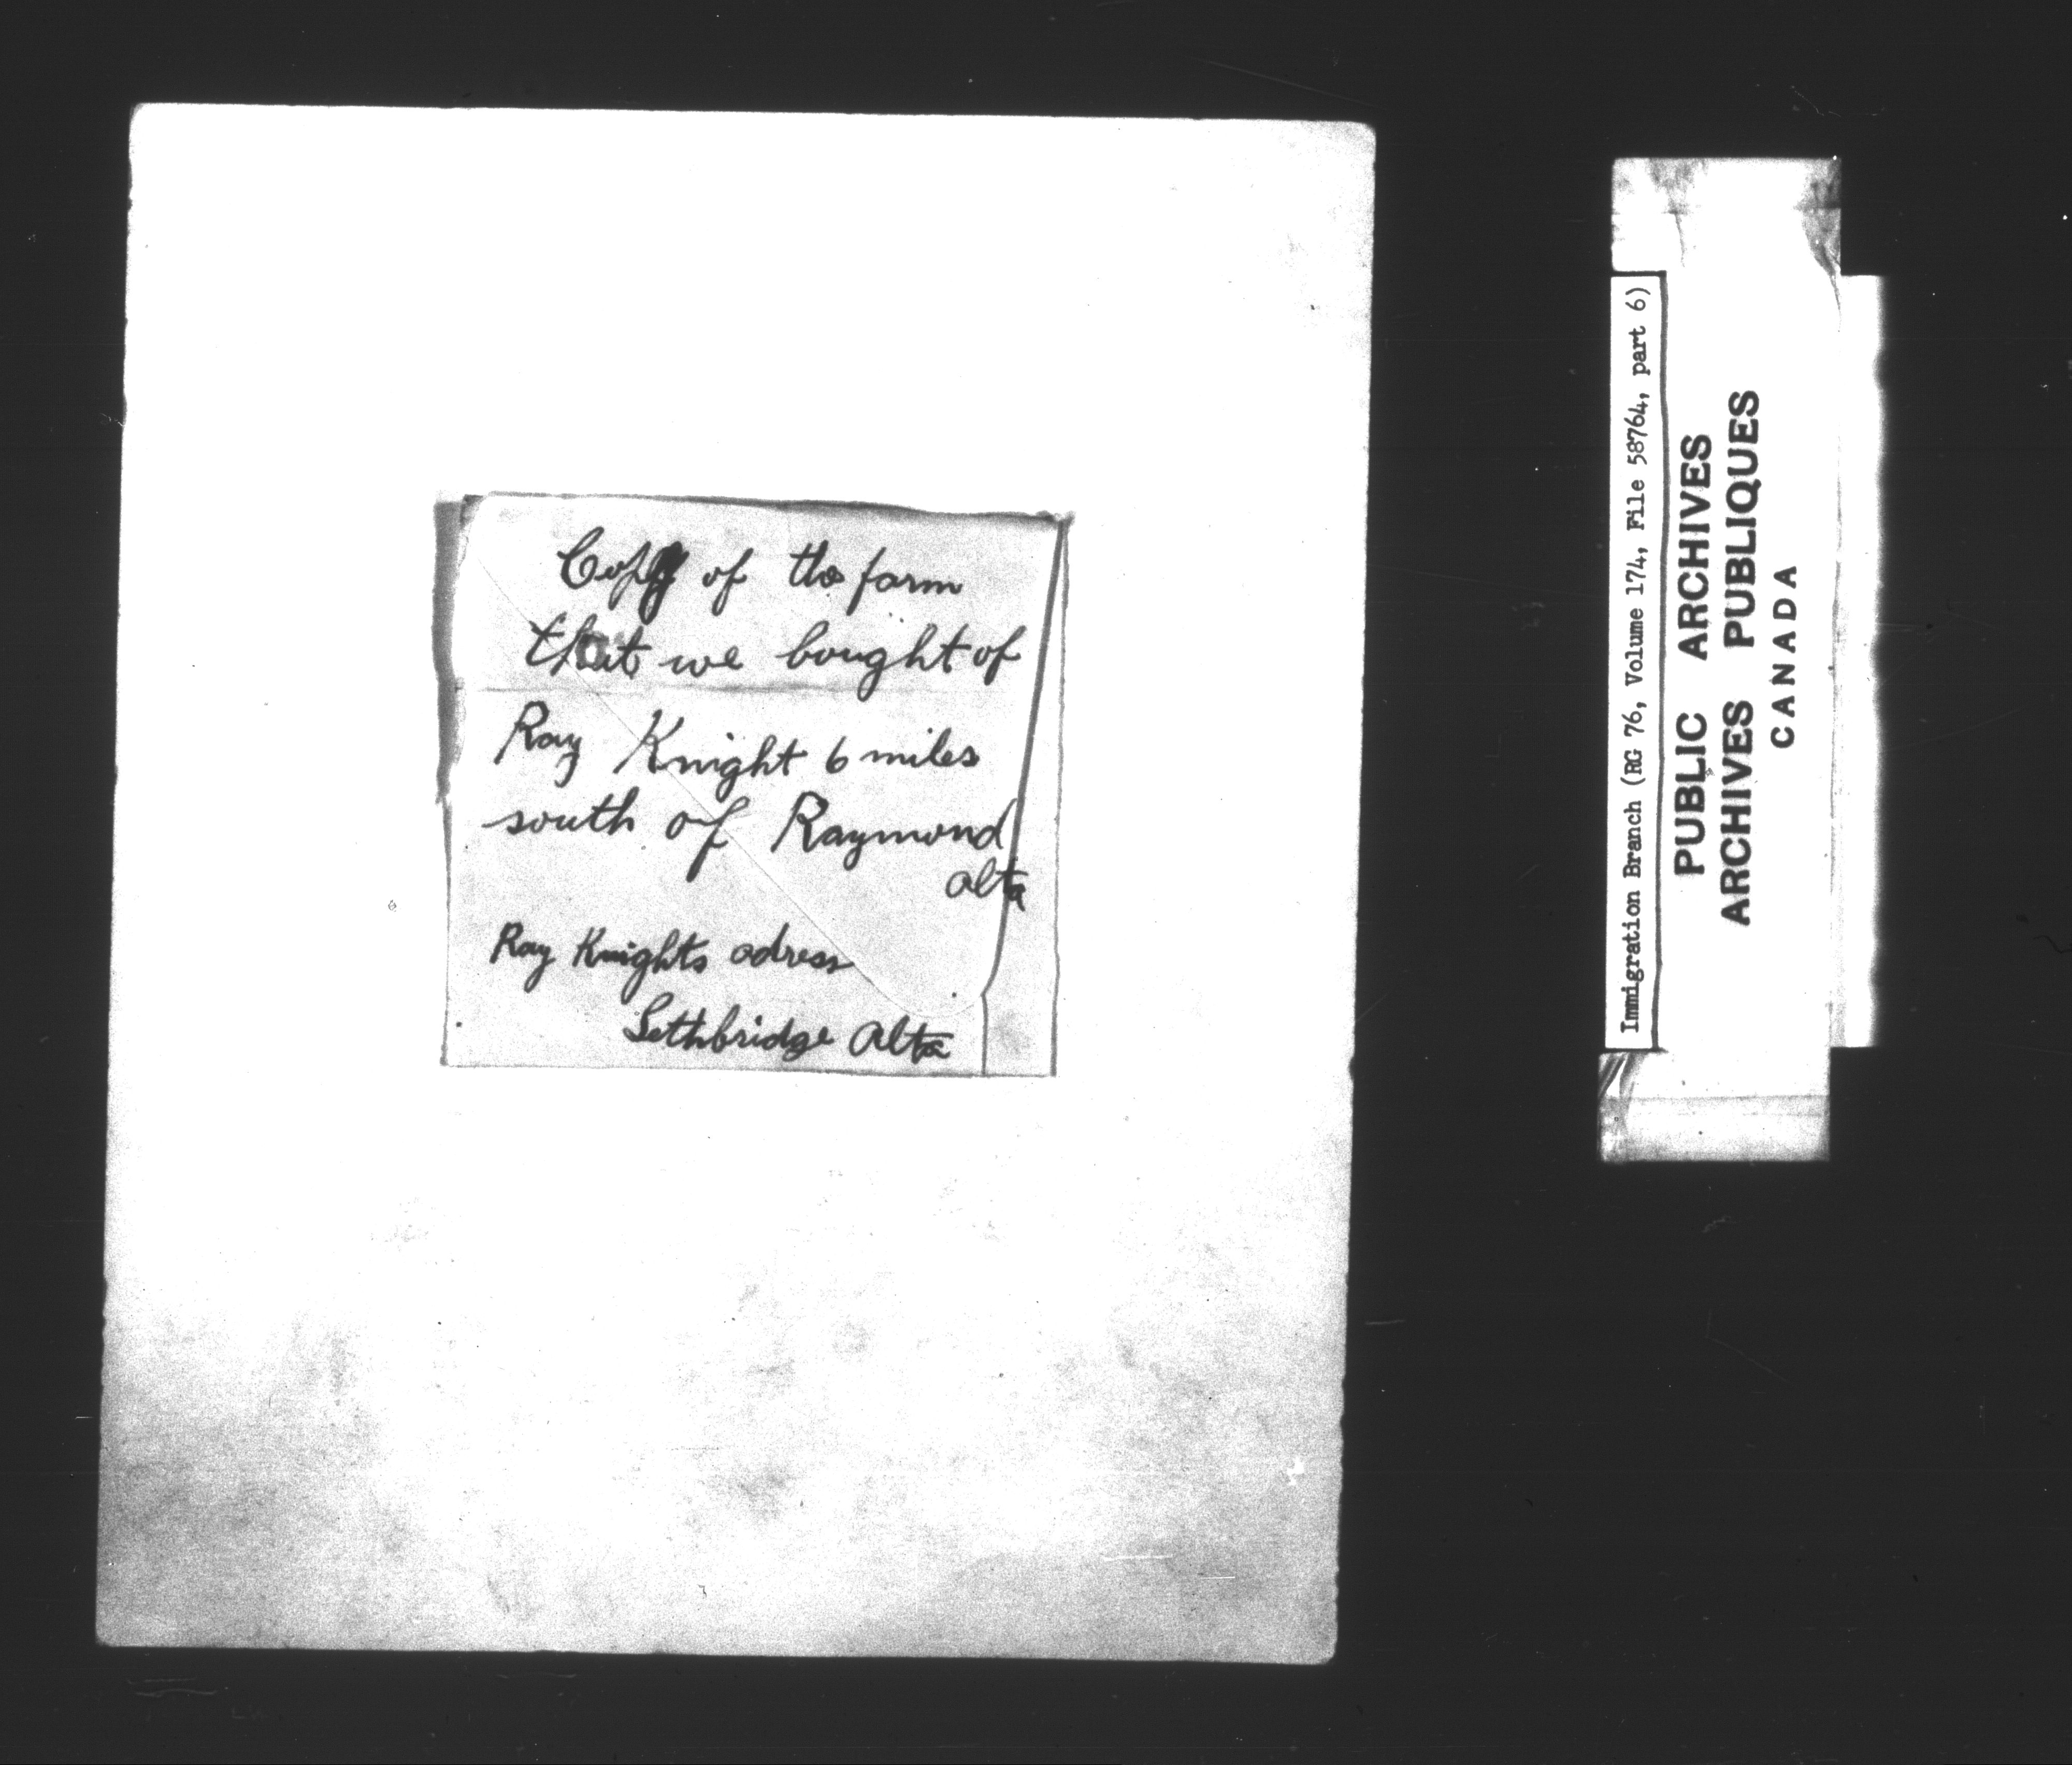 Copy of the farm
that we bought of
Ray Knight 6 miles
south of Raymond
Alta
Ray Knights adress
Lethbridge Alta
Immigration Branch (RG 76, Volume 174, File 58764, part 6)
PUBLIC ARCHIVES
ARCHIVES PUBLIQUES
CANADA